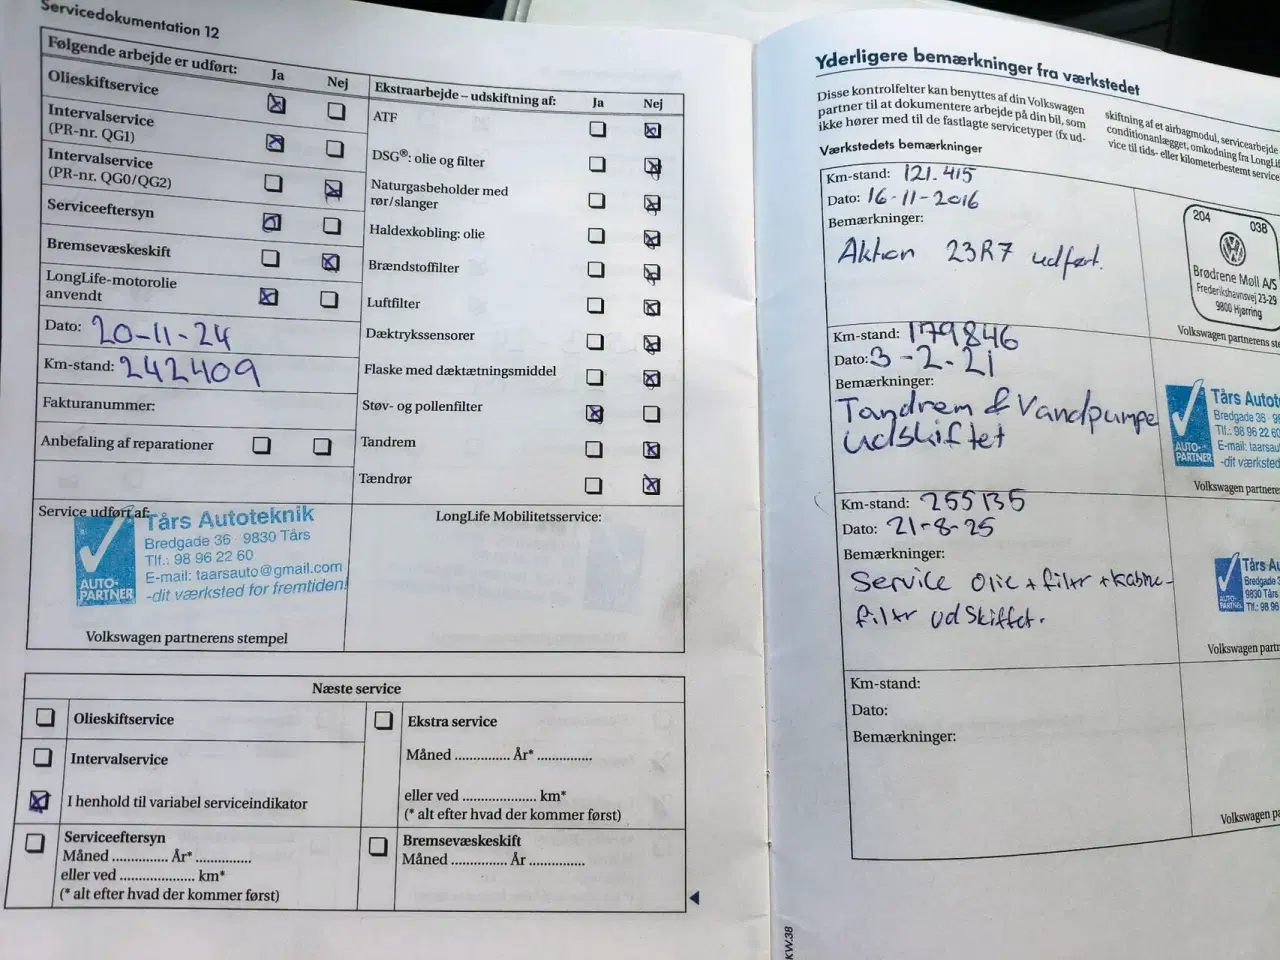 Servicedokumentation 12
Følgende arbejde er udført: Ja Nej
Olieskiftservice
Intervalservice
(PR-nr. QG1)
Intervalservice
(PR-nr. QG0/QG2)
Serviceeftersyn
Bremsevæskeskift
LongLife-motorolie
anvendt
Dato: 20-11-24
Km-stand: 242409
Fakturanummer:
Anbefaling af reparationer
Ekstraarbejde – udskiftning af: Ja Nej
ATF
DSG®: olie og filter
Naturgasbeholder med
rør/slanger
Haldexkobling: olie
Brændstoffilter
Luftfilter
Dæktrykssensorer
Flaske med dæktætningsmiddel
Støv- og pollenfilter
Tandrem
Tændrør
Service udført af:
Tårs Autoteknik
Bredgade 36 · 9830 Tårs
Tlf.: 98 96 22 60
E-mail: taarsauto@gmail.com
-dit værksted for fremtiden!
AUTO-
PARTNER
Volkswagen partnerens stempel
LongLife Mobilitetsservice:
Næste service
Olieskiftservice
Intervalservice
I henhold til variabel serviceindikator
Serviceeftersyn
Måned ............... År* ...............
eller ved .................... km*
(* alt efter hvad der kommer først)
Ekstra service
Måned ............... År* ...............
eller ved .................... km*
(* alt efter hvad der kommer først)
Bremsevæskeskift
Måned ............... År ...............
Yderligere bemærkninger fra værkstedet
Disse kontrolfelter kan benyttes af din Volkswagen
partner til at dokumentere arbejde på din bil, som
ikke hører med til de fastlagte servicetyper (fx ud-
skiftning af et airbagmodul, servicearbejde
conditionanlægget, omkodning fra LongLi
vice til tids- eller kilometerbestemt service
Værkstedets bemærkninger
Km-stand: 121.415
Dato: 16-11-2016
Bemærkninger:
Aktion 23R7 udført.
204 038
Brødrene Møll A/S
Frederikshavnsvej 23-29
9800 Hjørring
Volkswagen partnerens ste
Km-stand: 179846
Dato: 3-2-21
Bemærkninger:
Tandrem & Vandpumpe
udskiftet
Tårs Autot
Bredgade 36 · 98
Tlf.: 98 96 22 60
E-mail: taarsau
-dit værksted
AUTO-
PARTNER
Volkswagen partneren
Km-stand: 255135
Dato: 21-8-25
Bemærkninger:
Service olie + filtr + kabine-
filtr udskiftet.
Tårs A
Bredgade 3
9830 Tårs
Tlf.: 98 96
AUTO-
PARTNER
Volkswagen partn
Km-stand:
Dato:
Bemærkninger:
Volkswagen pa
KW.38